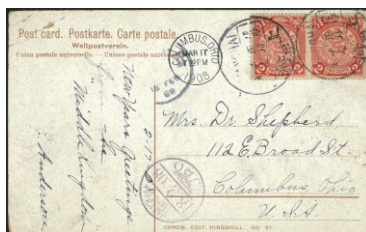 Post card. Postkarte. Carte postale.
Weltpostverein.
Union postale universelle. - Unione postale universale.
COLUMBUS, OHIO
MAR 17
7-PM
1906
2 2
New Year Greetings
from the
Middle Kingdom
Anderson
2-17-06
Mrs. Dr. Shepherd
112 E. Broad St.
Columbus, Ohio
U.S.A.
CHROM. EDIT, KINGSHILL. NO 21